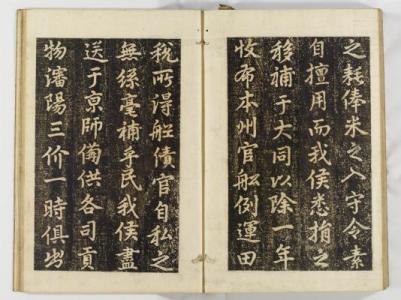 之耗俸米之入守令素
自擅用而我侯悉捐之
移補于大同以除一年
收布本州官船例運田
稅所得船債官自私之
無絲毫補乎民我侯盡
送于京師備供各司貢
物瀋陽三价一時俱出